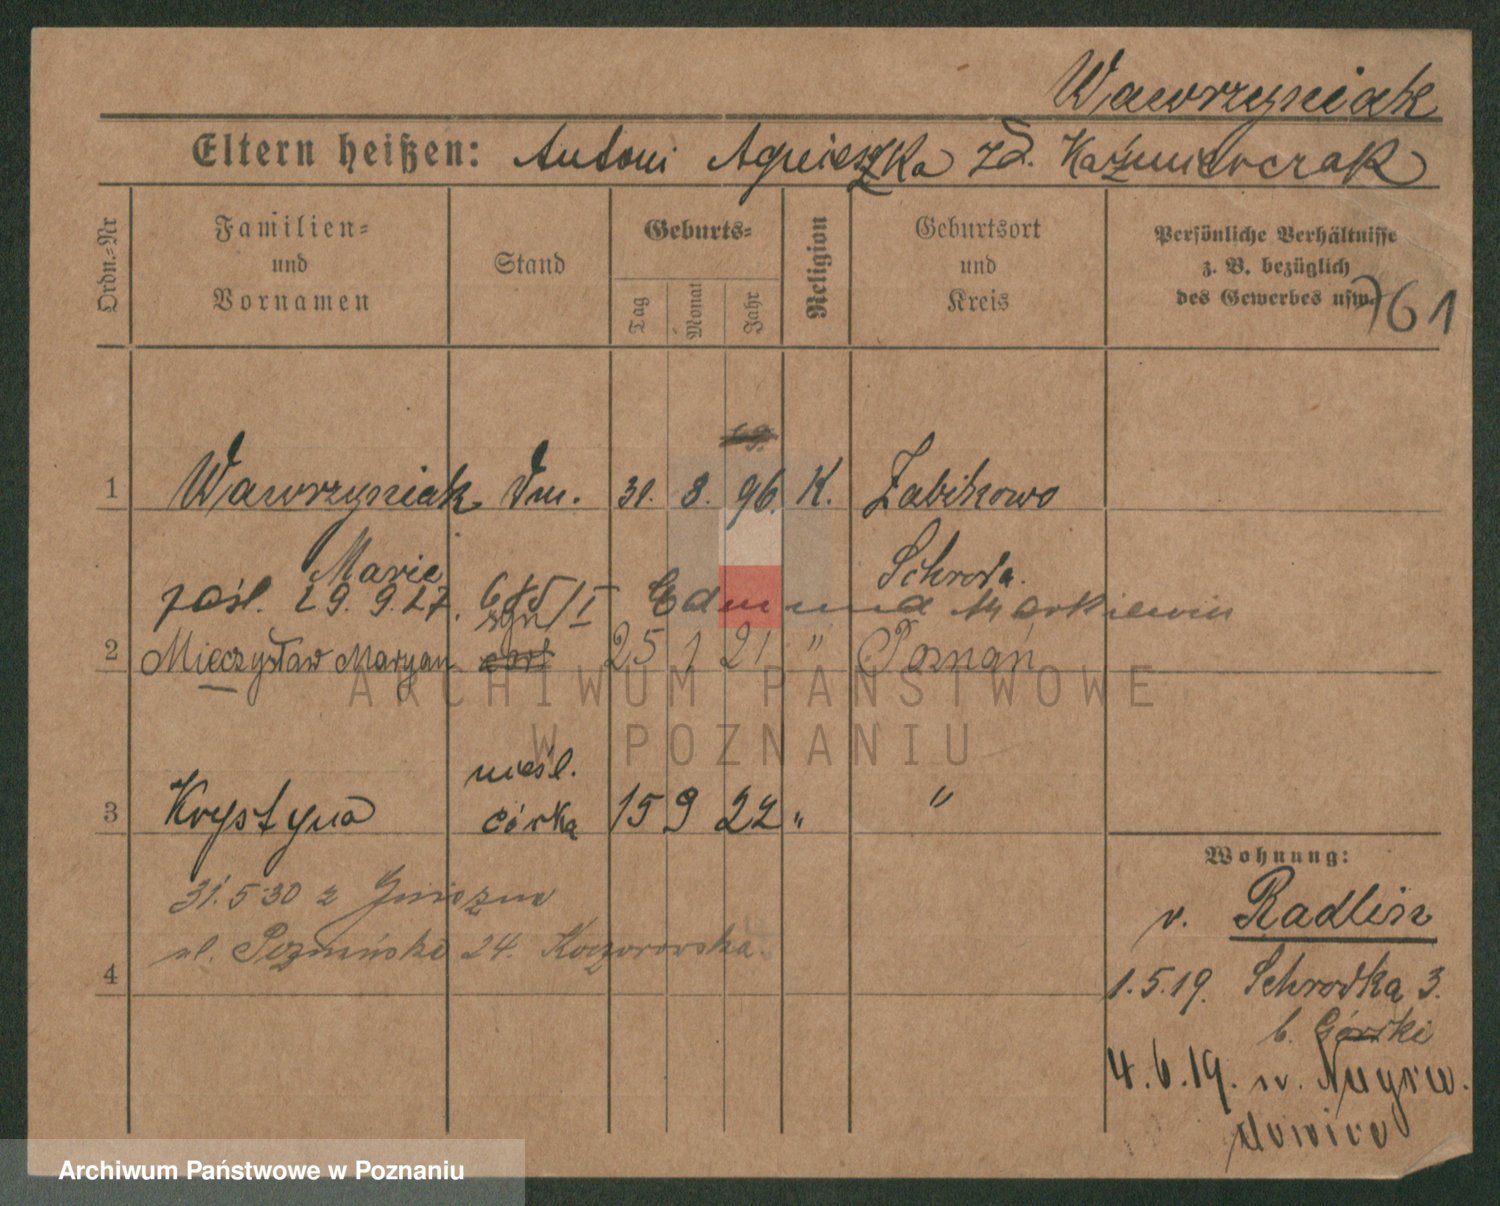 Wawrzyniak
Eltern heißen: Antoni Agnieszka zd. Kaźmierczak
Ordn.-Nr
Familien-
und
Vornamen
Stand
Geburts-
Tag
Monat
Jahr
Religion
Geburtsort
und
Kreis
Persönliche Verhältnisse
z. B. bezüglich
des Gewerbes usw.
761
1 Wawrzyniak 31. 8. 96. K. Żabikowo
Marie Schroda.
pośl. 29. 9. 27. Edmund Markiewicz
2 Mieczysław Maryan syn 25 1 21 " Poznań
ARCHIWUM PAŃSTWOWE
W POZNANIU
nieśl.
3 Krystyna córka 15 9 22 " "
Wohnung:
31.5.30 z Gniezna
v. Radlin
ul. 24.
4
1.5.19. Schrodka 3.
b. Górski
4.6.19. n.
Archiwum Państwowe w Poznaniu